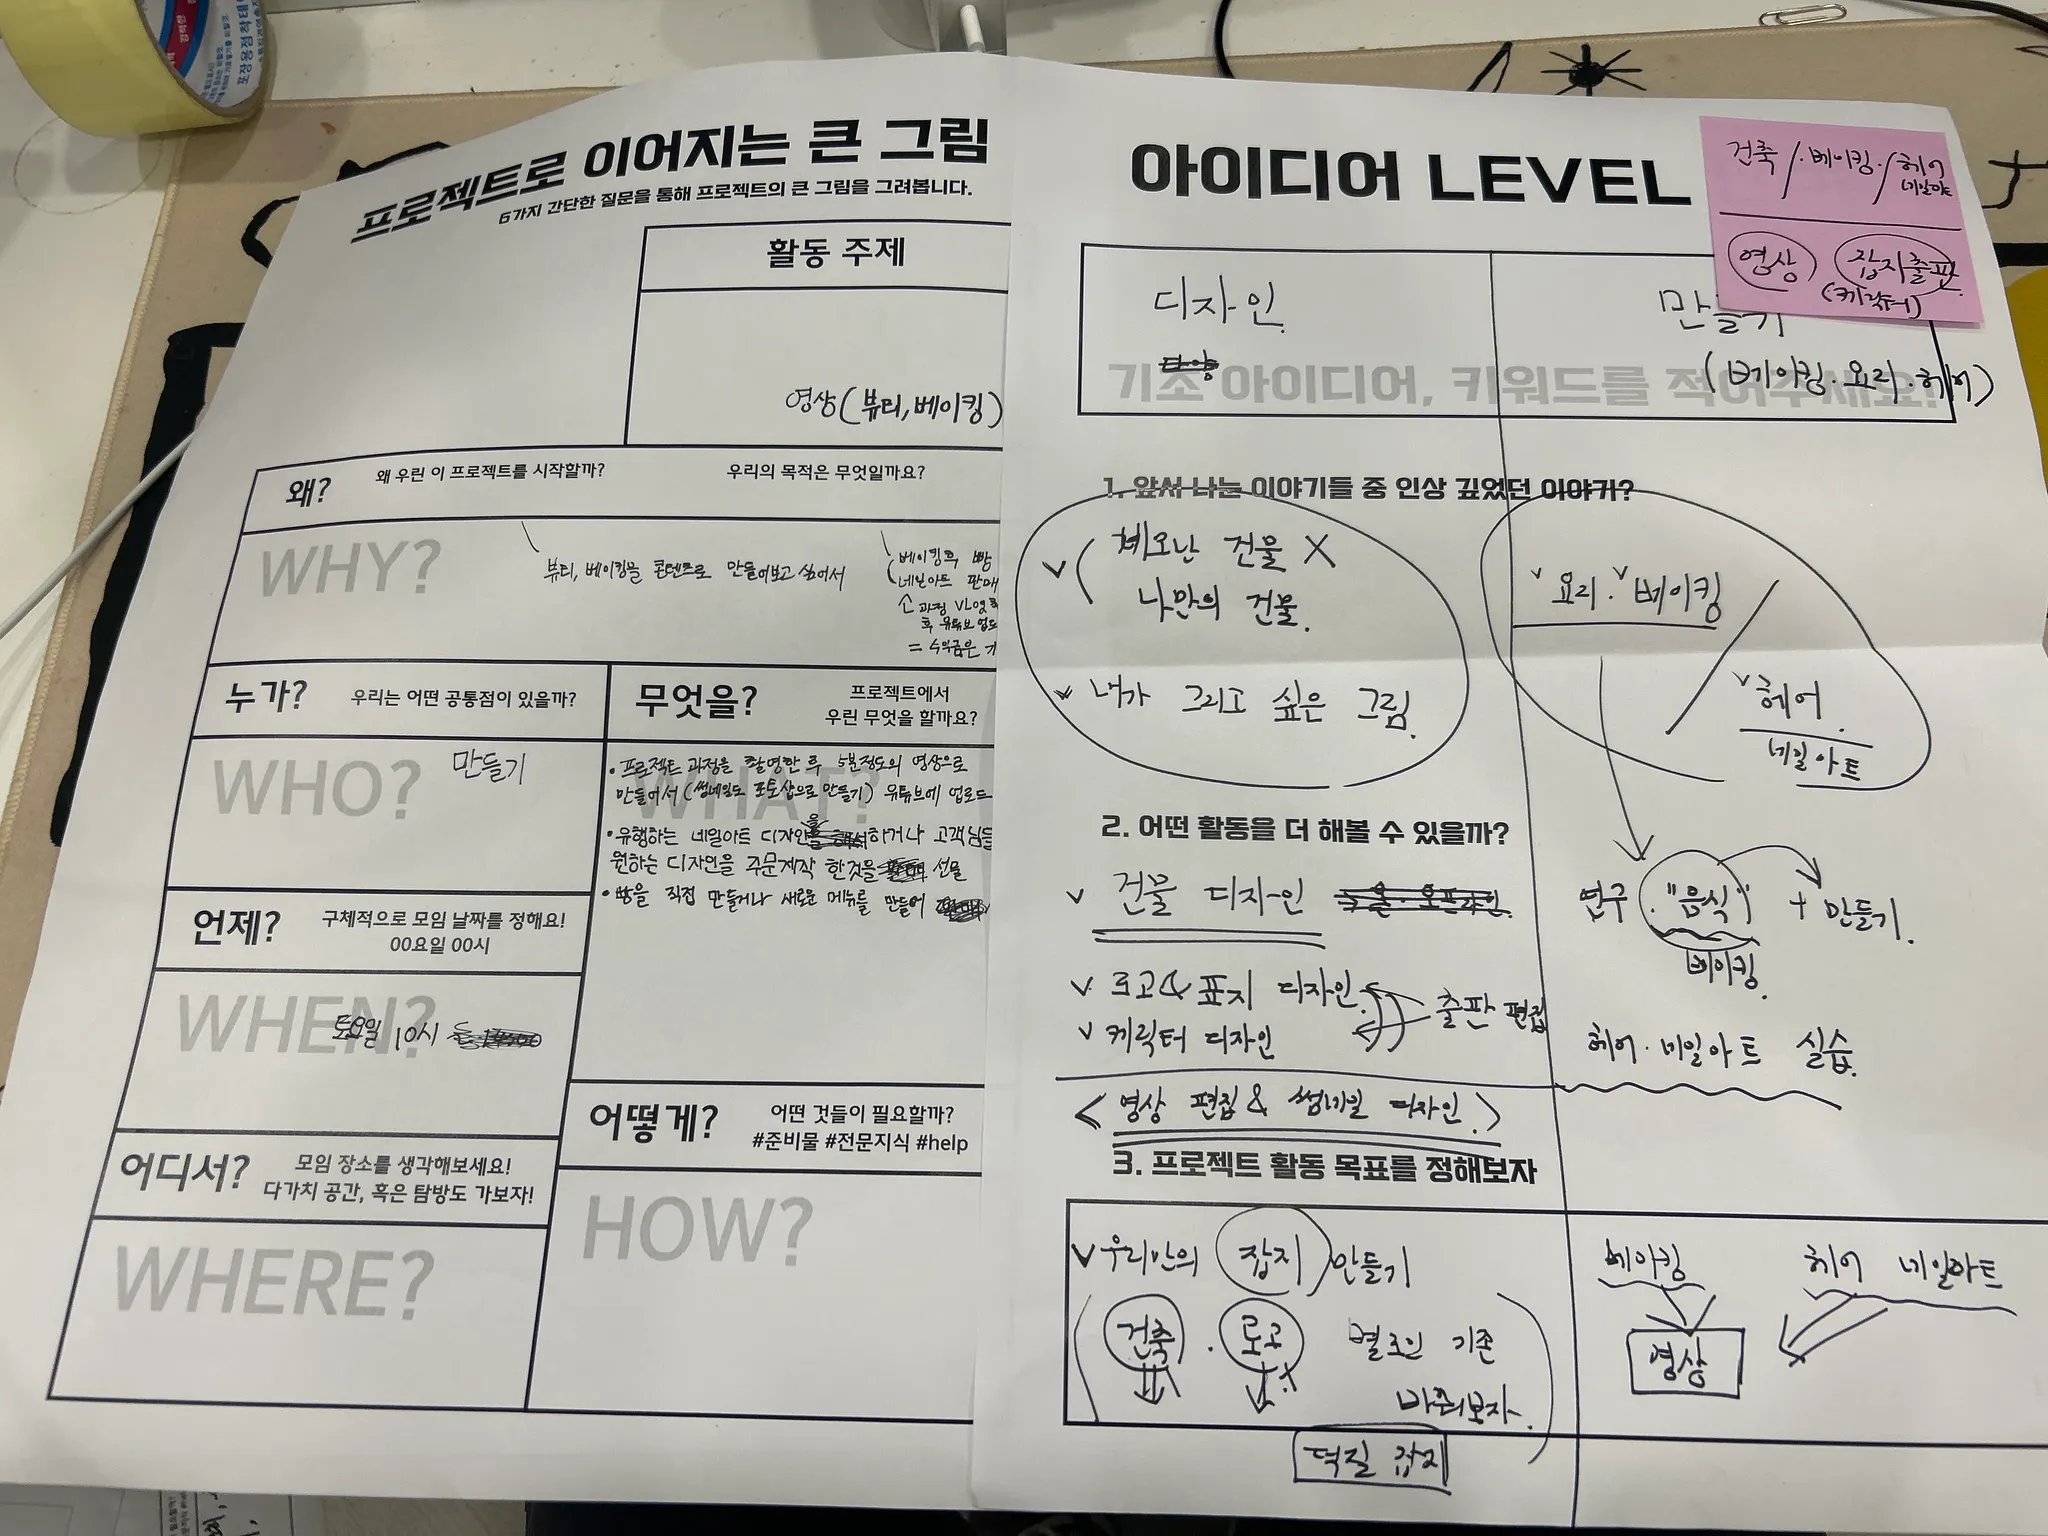 프로젝트로 이어지는 큰 그림
6가지 간단한 질문을 통해 프로젝트의 큰 그림을 그려봅니다.
활동 주제
영상(뷰티,베이킹)
왜?
왜 우린 이 프로젝트를 시작할까?
우리의 목적은 무엇일까요?
WHY?
뷰티, 베이킹을 콘텐츠로 만들어보고 싶어서
베이킹후 빵
네일아트 판매
과정 VLOG
후 유튜브 업로
= 수익금은 기
누가?
우리는 어떤 공통점이 있을까?
WHO?
만들기
무엇을?
프로젝트에서
우린 무엇을 할까요?
WHAT?
• 프로젝트 과정을 촬영한 후 5분정도의 영상으로
만들어서 (썸네일도 포토샵으로 만들기) 유튜브에 업로드
• 유행하는 네일아트 디자인을 하거나 고객님들
원하는 디자인을 주문제작 한것을 선물
• 빵을 직접 만들거나 새로운 메뉴를 만들어
언제?
구체적으로 모임 날짜를 정해요!
00요일 00시
WHEN?
토요일 10시
어디서?
모임 장소를 생각해보세요!
다가치 공간, 혹은 탐방도 가보자!
WHERE?
어떻게?
어떤 것들이 필요할까?
#준비물 #전문지식 #help
HOW?
아이디어 LEVEL
건축 / 베이킹 / 헤어
네일아트
영상 잡지출판
(캐릭터)
디자인
만들기
(베이킹·요리·헤어)
기초 아이디어, 키워드를 적어주세요!
1. 앞서 나눈 이야기들 중 인상 깊었던 이야기?
네모난 건물 X
나만의 건물.
내가 그리고 싶은 그림.
요리·베이킹
헤어.
네일아트
2. 어떤 활동을 더 해볼 수 있을까?
건물 디자인
로고& 표지 디자인.
케릭터 디자인
출판 편집
연구 · "음식" + 만들기.
베이킹.
헤어·네일아트 실습.
< 영상 편집 & 썸네일 디자인.>
3. 프로젝트 활동 목표를 정해보자
우리만의 잡지 만들기
건축 · 로고 별로인 기존
바꿔보자.
덕질 잡지
베이킹 헤어 네일아트
영상